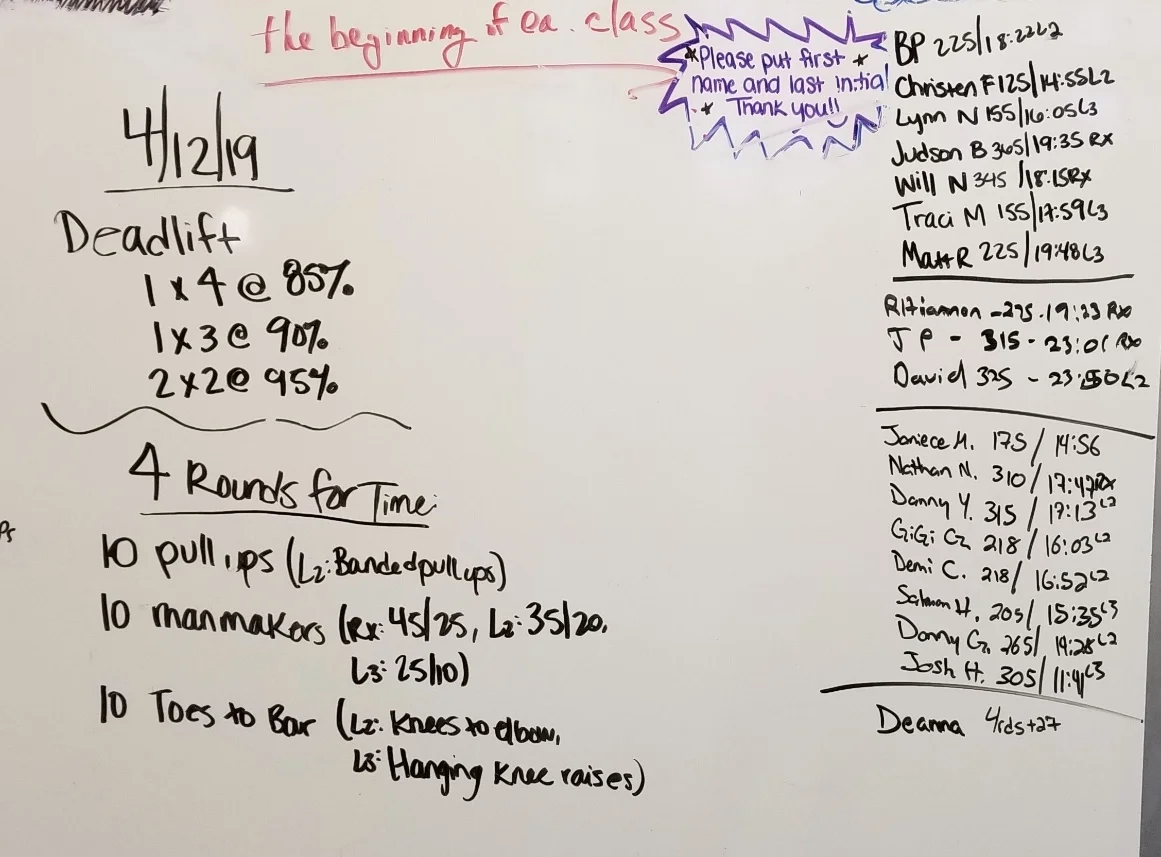 the beginning of ea. class
*Please put first *
name and last initial
* Thank you!!
4/12/19
Deadlift
1 x 4 @ 85%
1 x 3 @ 90%
2 x 2 @ 95%
4 Rounds for Time:
10 pull ups (L2: Banded pull ups)
10 manmakers (Rx: 45/25, L2: 35/20,
L3: 25/10)
10 Toes to Bar (L2: Knees to elbow,
L3: Hanging Knee raises)
BP 225/18:22 L2
Christen F 125/14:55 L2
Lynn N 155/16:05 L3
Judson B 365/19:35 Rx
Will N 345 /18:15 Rx
Traci M 155/17:59 L3
Matt R 225/19:48 L3
Rhiannon - 275 - 19:23 Rx
JP - 315 - 23:01 Rx
David 325 - 23:50 L2
Janiece M. 175 / 14:56
Nathan N. 310 / 17:47 Rx
Danny Y. 315 / 17:13 L2
GiGi G. 218 / 16:03 L2
Demi C. 218/ 16:52 L2
Salmon H. 205/ 15:35 L3
Danny G. 265/ 19:28 L2
Josh H. 305/ 11:41 L3
Deanna 4rds+27